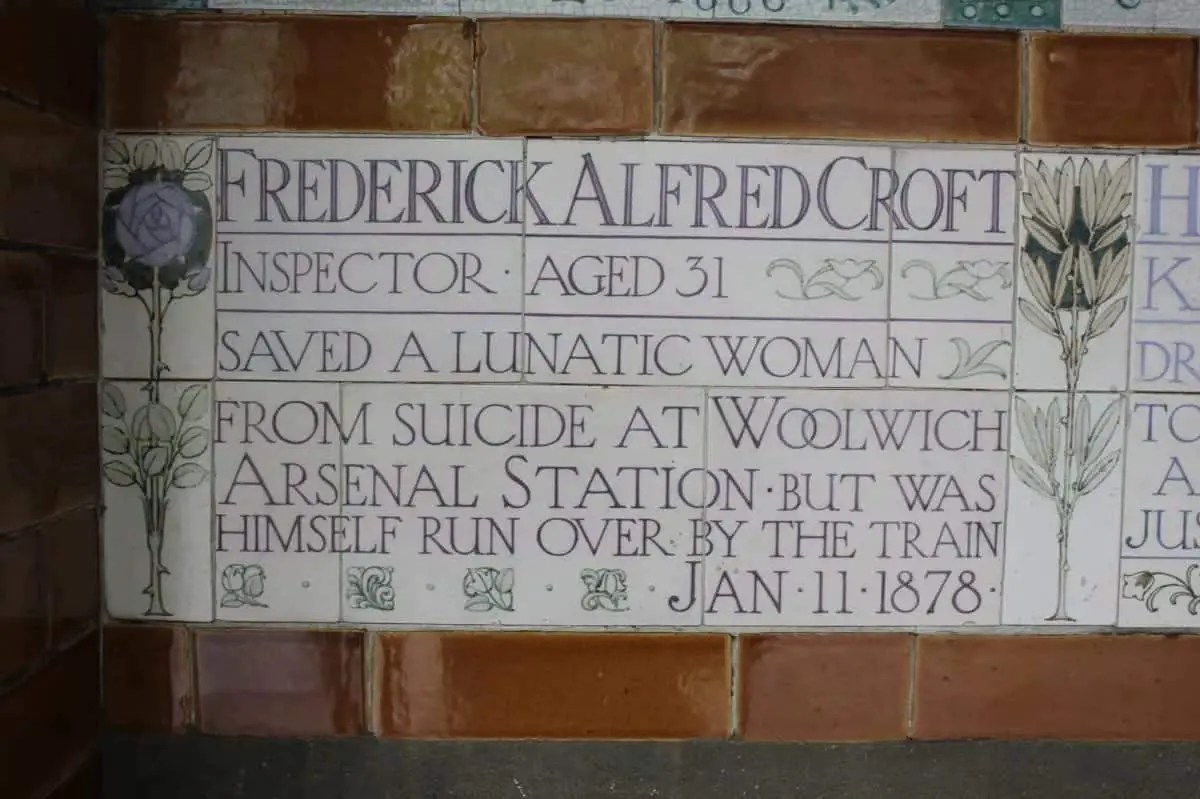 FREDERICK ALFRED CROFT
INSPECTOR · AGED 31
SAVED A LUNATIC WOMAN
FROM SUICIDE AT WOOLWICH
ARSENAL STATION · BUT WAS
HIMSELF RUN OVER BY THE TRAIN
JAN · 11 · 1878 ·
H
K
DR
TO
A
JUS